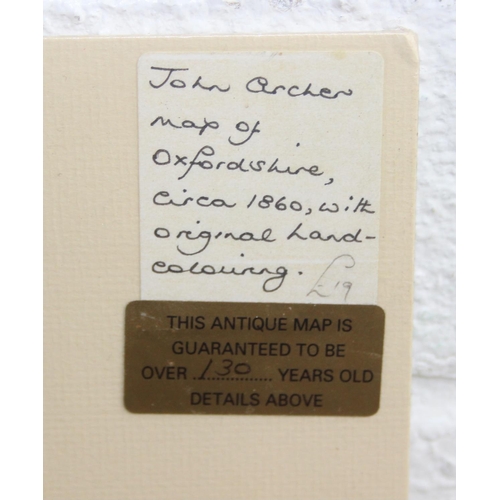 John Archer
map of
Oxfordshire,
circa 1860, with
original hand-
colouring. £19
THIS ANTIQUE MAP IS
GUARANTEED TO BE
OVER 130 YEARS OLD
DETAILS ABOVE